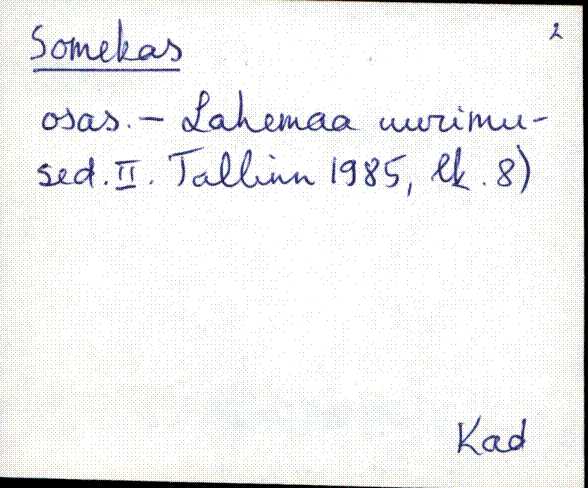 Somekas 2
osas. - Lahemaa uurimu-
sed. II. Tallinn 1985, lk. 8)
Kad